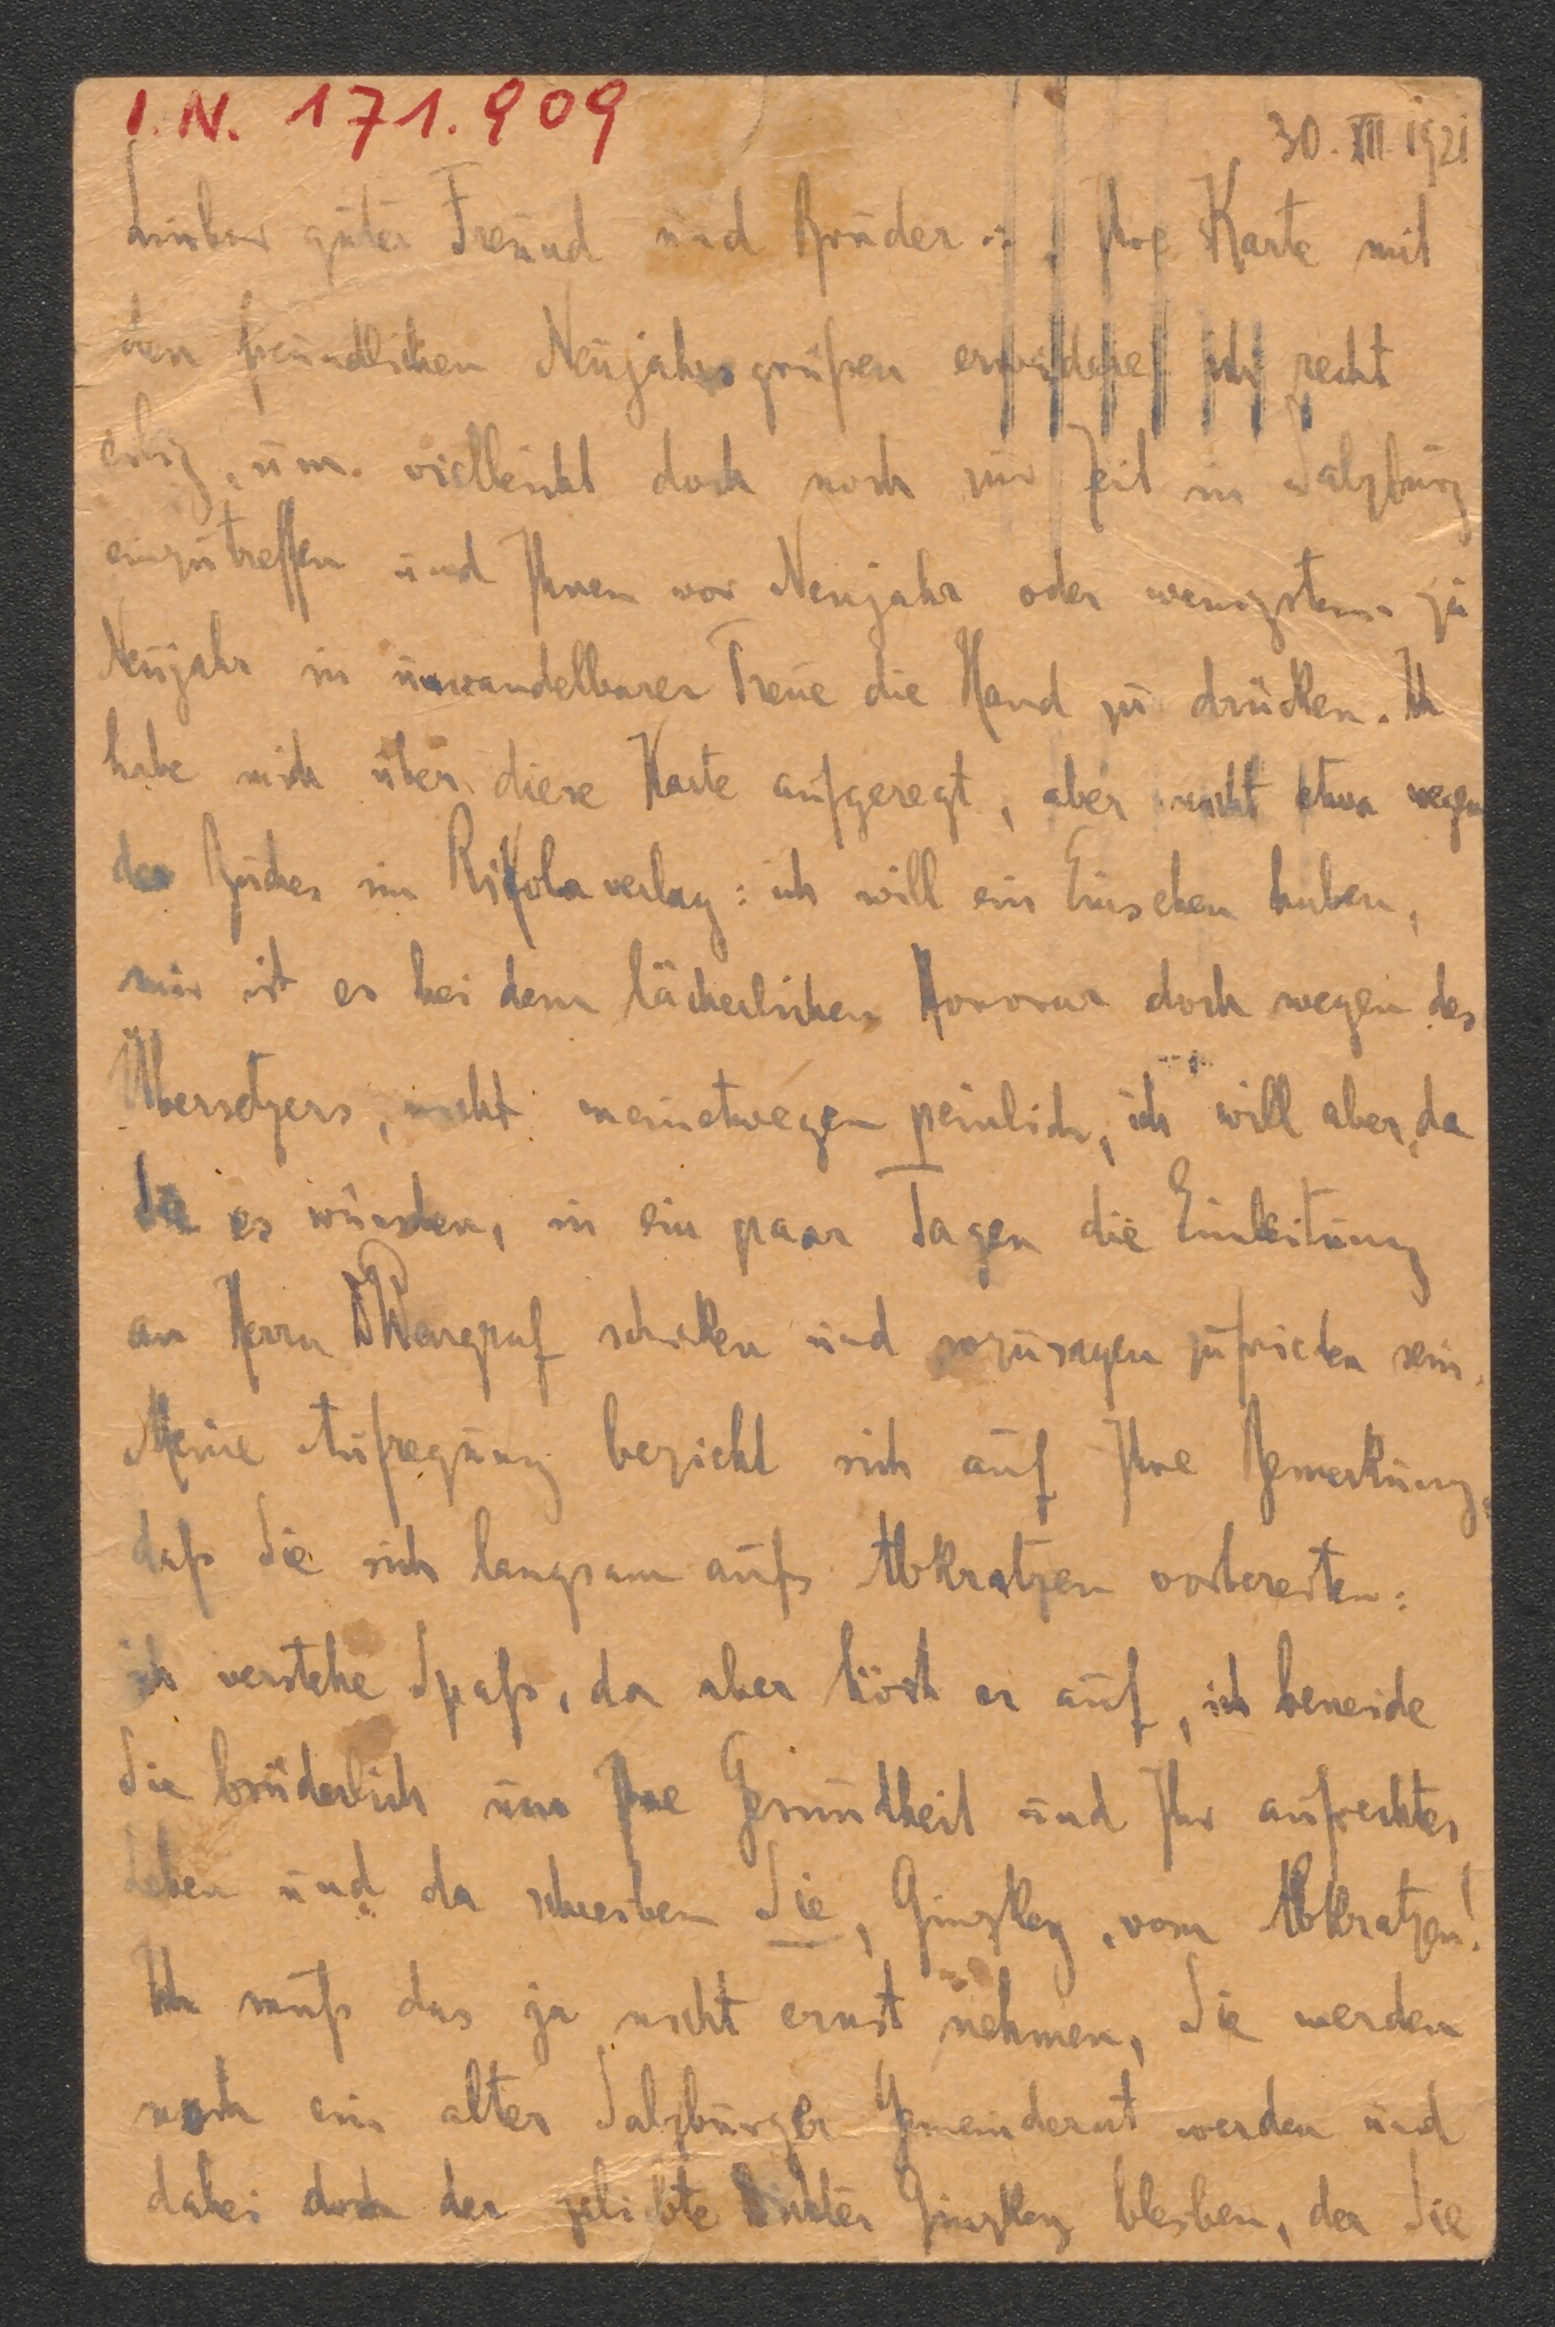 I.N. 171.909
30. XII. 1921
Lieber guter Freund und Bruder: Ihre Karte mit
den freundlichen Neujahrsgrüßen erwidere ich recht
eilig, um vielleicht doch noch zur Zeit in Salzburg
einzutreffen und Ihnen vor Neujahr oder wenigstens zu
Neujahr in unwandelbarer Treue die Hand zu drücken. Ich
habe mich über diese Karte aufgeregt, aber nicht etwa wegen
des Buches im Rikolaverlag: ich will ein Einsehen haben,
mir ist es bei dem lächerlichen Honorar doch wegen des
Übersetzers, nicht meinetwegen peinlich, ich will aber, da
Sie es wünschen, in ein paar Tagen die Einleitung
an Herrn Wengraf schicken und sozusagen zufrieden sein.
Meine Aufregung bezieht sich auf Ihre Bemerkung,
daß Sie sich langsam aufs Abkratzen vorbereiten:
ich verstehe Spaß, da aber hört er auf, ich beneide
Sie brüderlich um Ihre Gesundheit und Ihr aufrechtes
Leben und da schreiben Sie, Ginzkey, vom Abkratzen!
Ich muß das ja nicht ernst nehmen, Sie werden
noch ein alter Salzburger Gemeinderat werden und
dabei doch der geliebte Dichter Ginzkey bleiben, der Sie